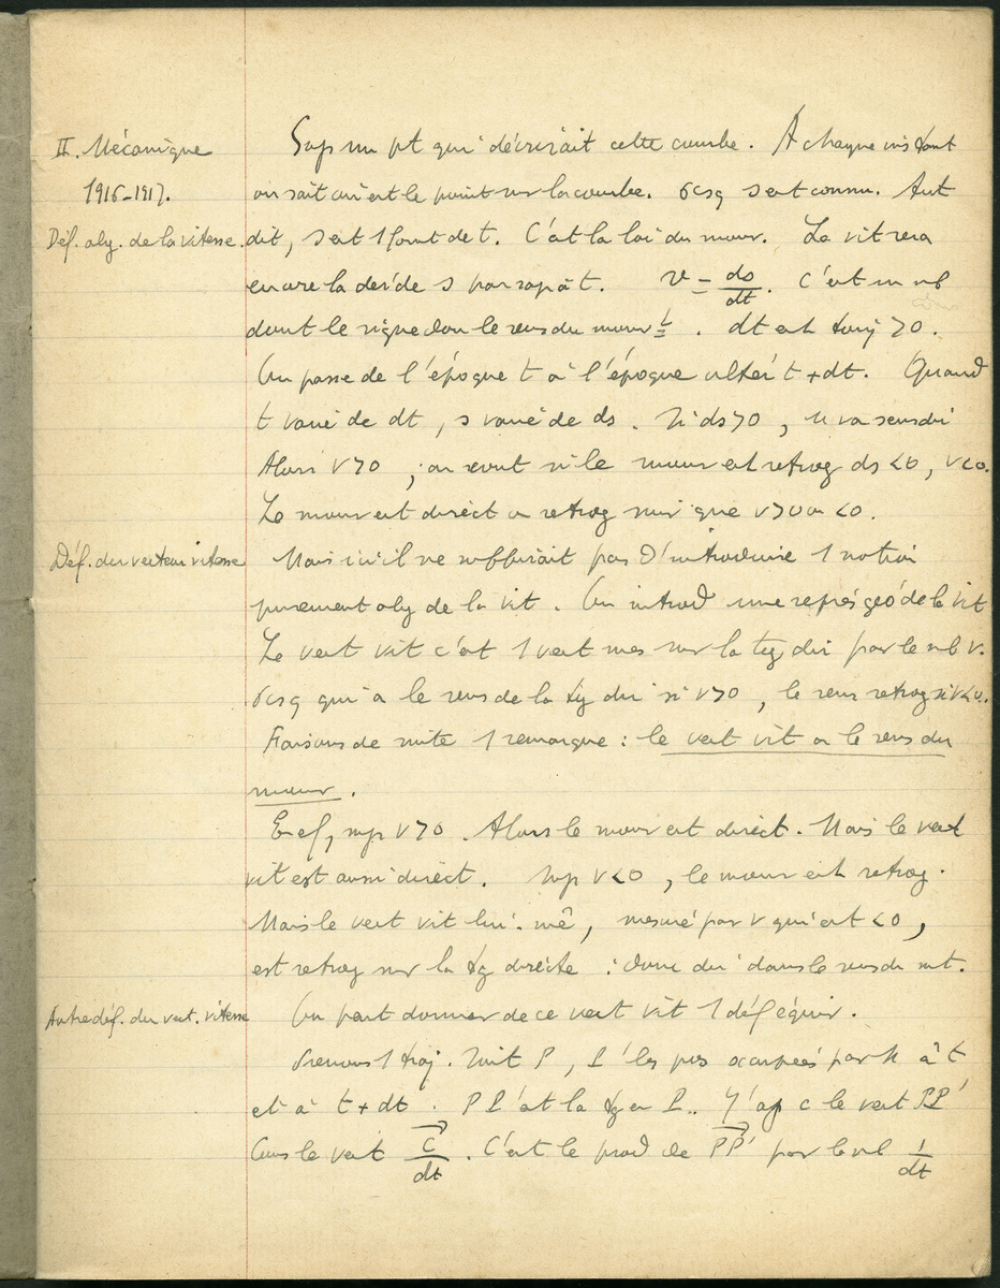 II. Mécanique
1916-1917.
Déf. alg. de la vitesse.
Sup un pt qui décrirait cette courbe. A chaque instant
on sait où est le point sur la courbe. s est connu. Aut
dit, s est 1 fonct de t. C'est la loi du mouv. La vit sera
encore la dér de s par rap à t. v = ds/dt. C'est un nb
dont le signe don le sens du mouv t. dt est touj >0.
On passe de l'époque t à l'époque ultér t+dt. Quand
t varie de dt, s varie de ds. Si ds>0, va sens dir
Alors v>0 ; au cont si le mouv est retrog ds <0, v<0.
Le mouv est direct ou retrog suiv que v>0 ou <0.
Déf. du vecteur vitesse
Mais ici il ne suffirait pas d'introduire 1 notion
purement alg de la vit. On introd une représ géo de la vit
Le vect vit c'est 1 vect mes sur la tg dir par le nb v.
qui a le sens de la tg dir si v>0, le sens retrog si v<0.
Faisons de suite 1 remarque : le vect vit a le sens du
mouv.
En ef, sup v>0. Alors le mouv est direct. Mais le vect
vit est aussi direct. Sup v<0, le mouv est retrog.
Mais le vect vit lui-mê, mesuré par v qui est <0,
est retrog sur la tg directe : donc dir dans le sens du mt.
Autre déf. du vect. vitesse
On peut donner de ce vect vit 1 déf équiv.
Prenons 1 traj. Soit P, P' les pos occupées par M à t
et à t+dt. PP' est la tg en P. J'ap c le vect PP'
Cons le vect c/dt. C'est le prod de PP' par le nb 1/dt